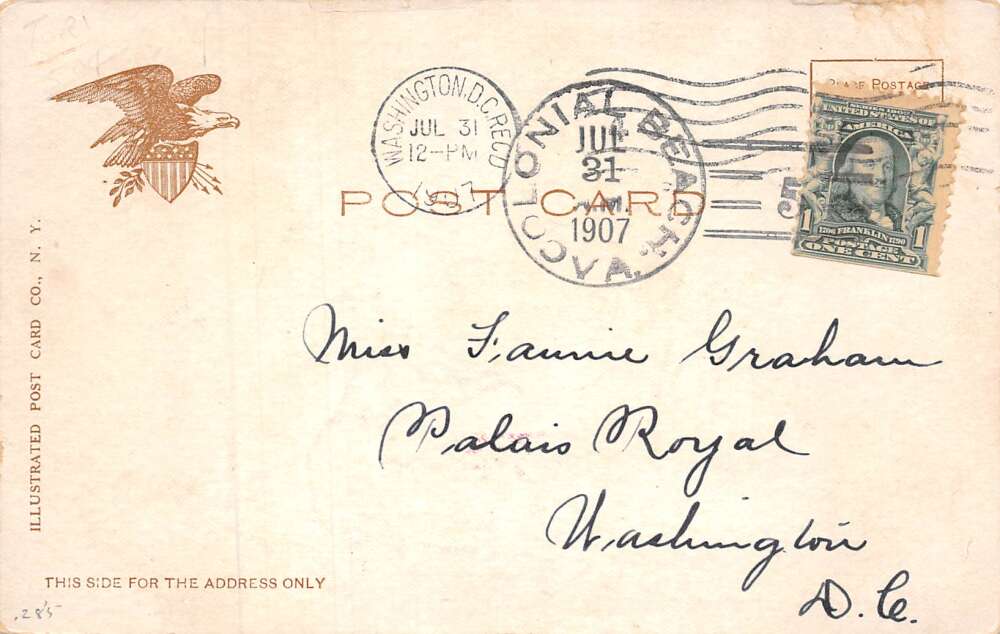 T. 21
WASHINGTON, D.C. REC'D
JUL 31
12-PM
1907
COLONIAL BEACH, VA.
JUL
31
A.M.
1907
5
PLACE POSTAGE
UNITED STATES OF
AMERICA
1706 FRANKLIN 1790
POSTAGE
1 ONE CENT 1
POST CARD
Miss Fannie Graham
Palais Royal
Washington
D.C.
ILLUSTRATED POST CARD CO., N. Y.
THIS SIDE FOR THE ADDRESS ONLY
.285